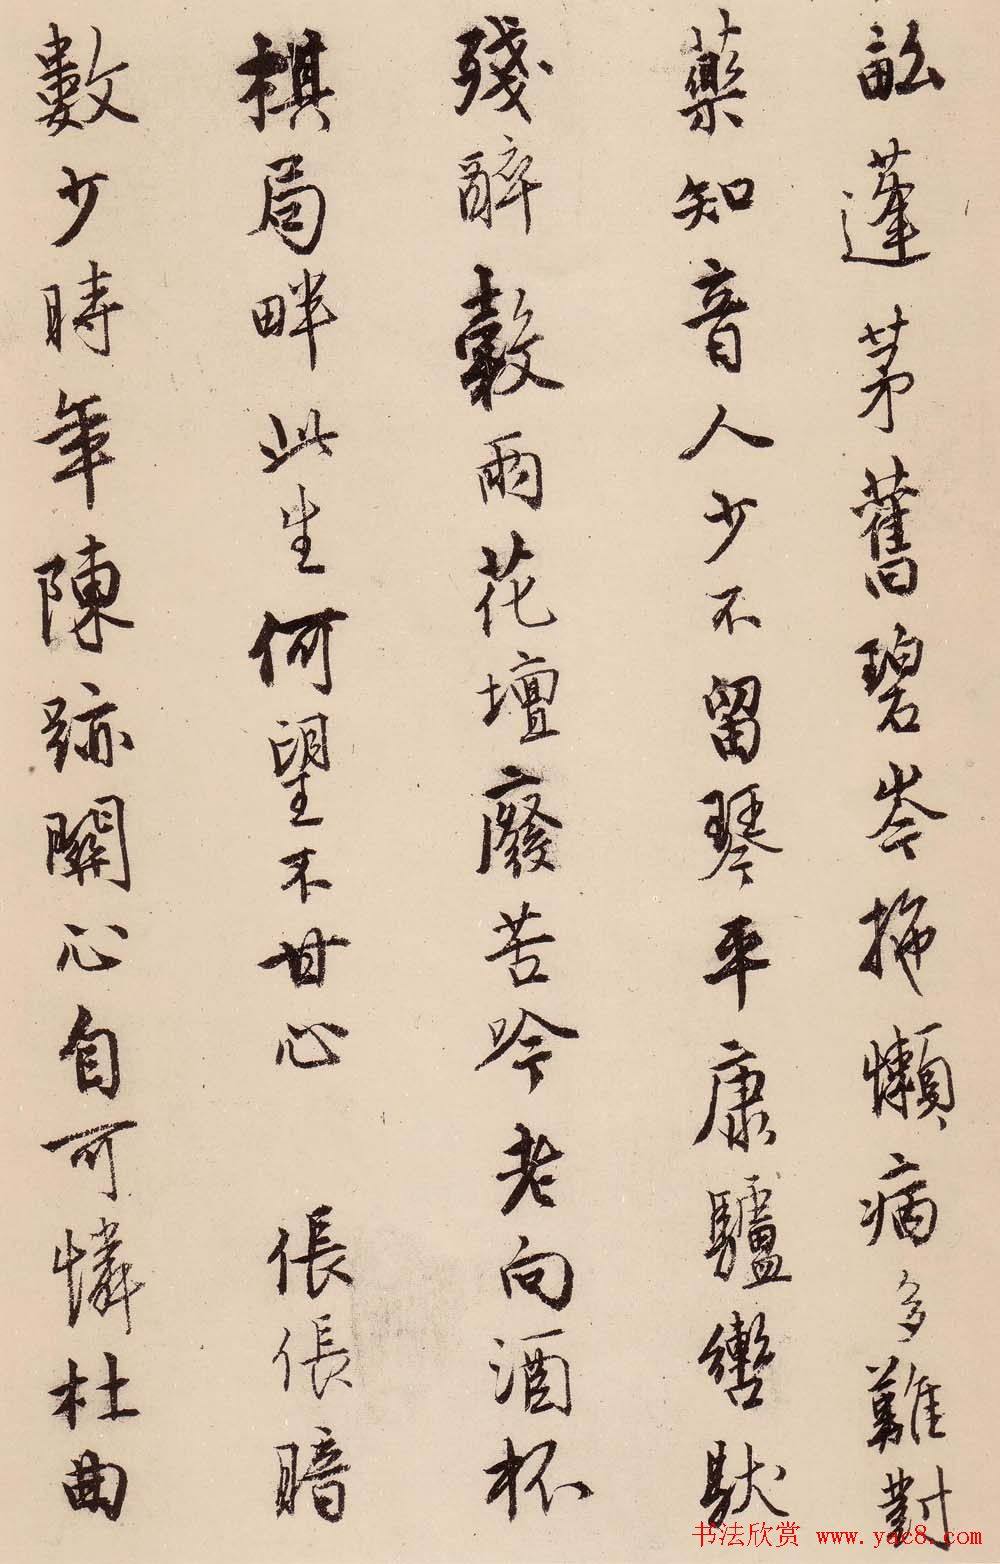 畝蓬茅舊碧岑拖懶病多難對
藥知音人少不留琴平康驢轡馱
殘醉穀雨花壇廢苦吟老向酒杯
棋局畔此生何望不甘心 倀倀暗
數少時年陳跡關心自可憐杜曲
书法欣赏 www.yac8.com